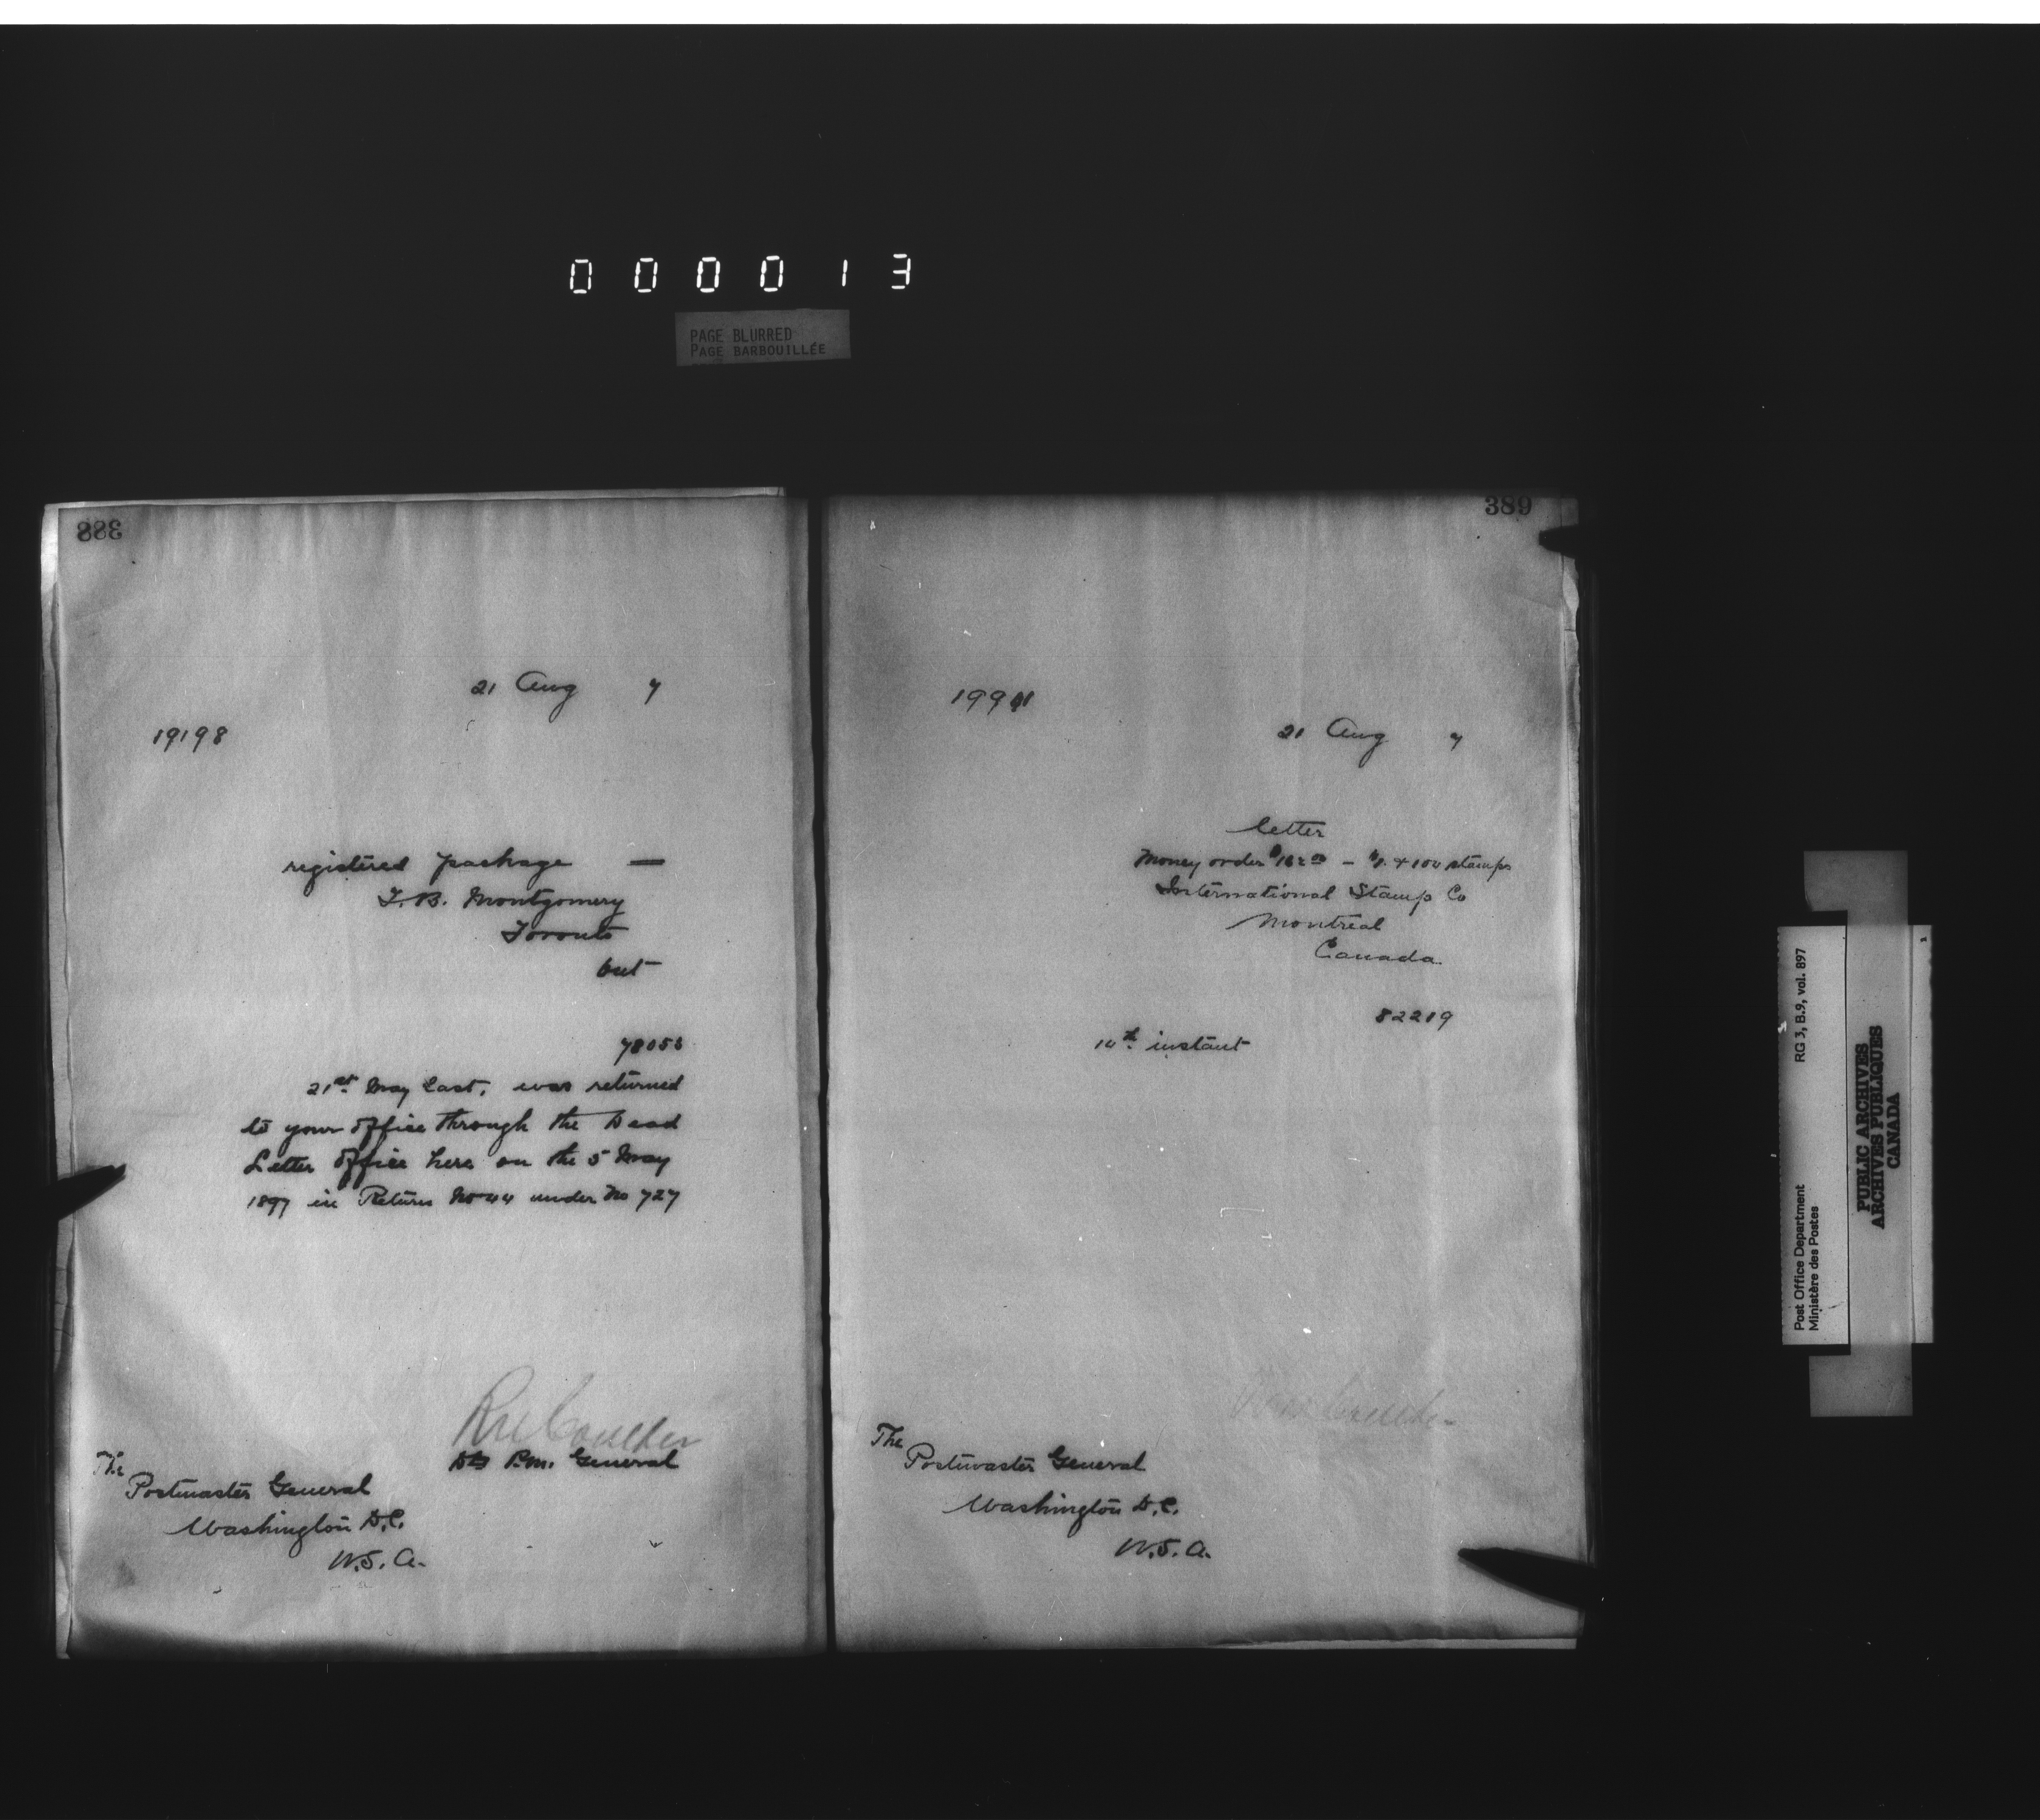 000013
PAGE BLURRED
PAGE BARBOUILLÉE
388
21 Aug 7
19198
registered package —
T. B. Montgomery
Toronto
Ont
21st May last, was returned
to your office through the Dead
Letter Office here on the 5 May
1897 in Return No 44 under No 727
RM Coulter
P.M. General
The
Postmaster General
Washington D.C.
U.S.A.
389
21 Aug 7
letter
Money order stamps
International Stamp Co
Montreal
Canada
82219
instant
The
Postmaster General
Washington D.C.
U.S.A.
RG 3, B.9, vol. 897
Post Office Department
Ministère des Postes
PUBLIC ARCHIVES
ARCHIVES PUBLIQUES
CANADA